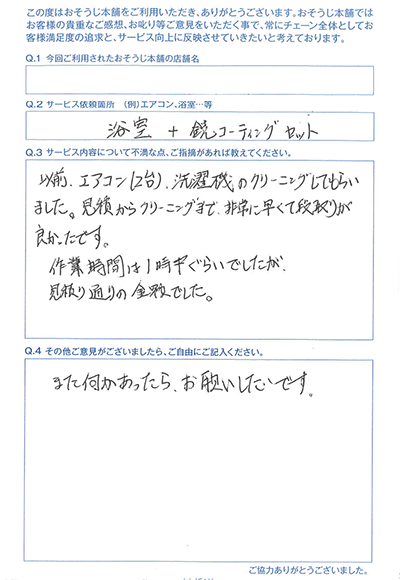 この度はおそうじ本舗をご利用いただき、ありがとうございます。おそうじ本舗では
お客様の貴重なご感想、お叱り等ご意見をいただく事で、常にチェーン全体としてお
客様満足度の追求と、サービス向上に反映させていきたいと考えております。
Q.1 今回ご利用されたおそうじ本舗の店舗名
Q.2 サービス依頼箇所 (例)エアコン、浴室…等
浴室 + 鏡コーティングセット
Q.3 サービス内容について不満な点、ご指摘があれば教えてください。
以前、エアコン(2台)、洗濯機のクリーニングしてもらい
ました。見積からクリーニングまで、非常に早くて段取りが
良かったです。
作業時間は1時半ぐらいでしたが、
見積り通りの金額でした。
Q.4 その他ご意見がございましたら、ご自由にご記入ください。
また何かあったら、お願いしたいです。
ご協力ありがとうございました。